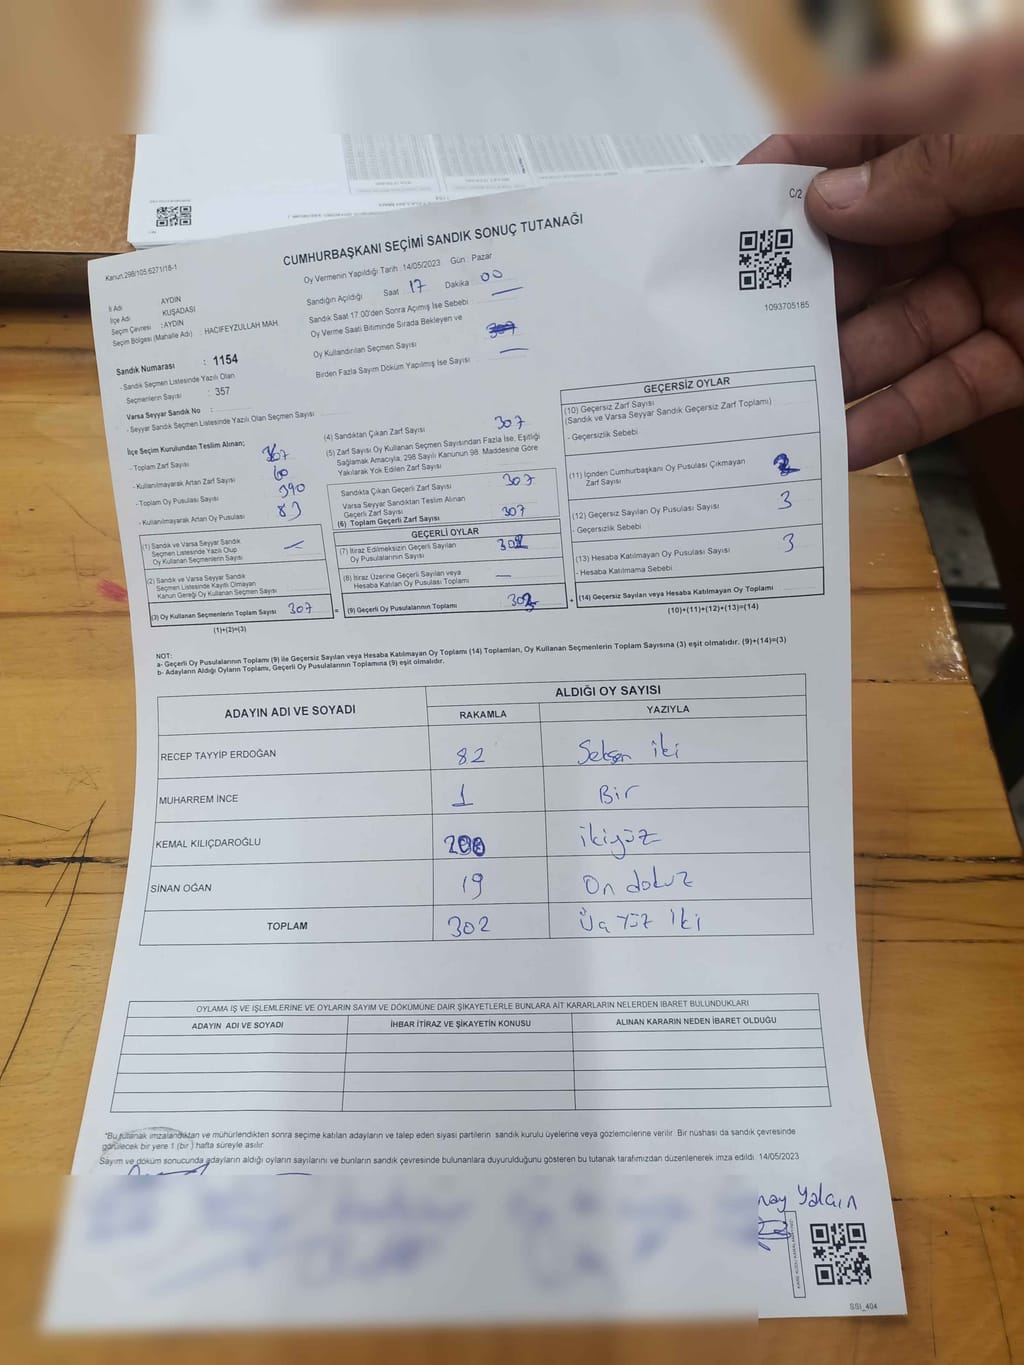 C/2
Kanun.298/105;6271/18-1
CUMHURBAŞKANI SEÇİMİ SANDIK SONUÇ TUTANAĞI
Oy Vermenin Yapıldığı Tarih : 14/05/2023 Gün : Pazar
1093705185
İl Adı AYDIN
İlçe Adı KUŞADASI
Seçim Çevresi : AYDIN
Seçim Bölgesi (Mahalle Adı) : HACIFEYZULLAH MAH.
Sandığın Açıldığı Saat 17 Dakika 00
Sandık Saat 17:00'den Sonra Açılmış İse Sebebi : —
Oy Verme Saati Bitiminde Sırada Bekleyen ve
Oy Kullandırılan Seçmen Sayısı
Birden Fazla Sayım Döküm Yapılmış İse Sayısı —
Sandık Numarası : 1154
- Sandık Seçmen Listesinde Yazılı Olan
Seçmenlerin Sayısı : 357
Varsa Seyyar Sandık No :
- Seyyar Sandık Seçmen Listesinde Yazılı Olan Seçmen Sayısı :
İlçe Seçim Kurulundan Teslim Alınan;
- Toplam Zarf Sayısı 367
- Kullanılmayarak Artan Zarf Sayısı 60
- Toplam Oy Pusulası Sayısı 390
- Kullanılmayarak Artan Oy Pusulası 83
(1) Sandık ve Varsa Seyyar Sandık
Seçmen Listesinde Yazılı Olup
Oy Kullanan Seçmenlerin Sayısı —
(2) Sandık ve Varsa Seyyar Sandık
Seçmen Listesinde Kayıtlı Olmayan
Kanun Gereği Oy Kullanan Seçmen Sayısı
(3) Oy Kullanan Seçmenlerin Toplam Sayısı 307
(1)+(2)=(3)
(4) Sandıktan Çıkan Zarf Sayısı 307
(5) Zarf Sayısı Oy Kullanan Seçmen Sayısından Fazla İse, Eşitliği
Sağlamak Amacıyla, 298 Sayılı Kanunun 98. Maddesine Göre
Yakılarak Yok Edilen Zarf Sayısı
Sandıkta Çıkan Geçerli Zarf Sayısı 307
Varsa Seyyar Sandıktan Teslim Alınan
Geçerli Zarf Sayısı
(6) Toplam Geçerli Zarf Sayısı 307
GEÇERLİ OYLAR
(7) İtiraz Edilmeksizin Geçerli Sayılan
Oy Pusulalarının Sayısı 302
(8) İtiraz Üzerine Geçerli Sayılan veya
Hesaba Katılan Oy Pusulası Toplamı —
= (9) Geçerli Oy Pusulalarının Toplamı 302
GEÇERSİZ OYLAR
(10) Geçersiz Zarf Sayısı
(Sandık ve Varsa Seyyar Sandık Geçersiz Zarf Toplamı)
- Geçersizlik Sebebi
(11) İçinden Cumhurbaşkanı Oy Pusulası Çıkmayan
Zarf Sayısı 2
(12) Geçersiz Sayılan Oy Pusulası Sayısı 3
- Geçersizlik Sebebi
(13) Hesaba Katılmayan Oy Pusulası Sayısı 3
- Hesaba Katılmama Sebebi
+ (14) Geçersiz Sayılan veya Hesaba Katılmayan Oy Toplamı
(10)+(11)+(12)+(13)=(14)
NOT:
a- Geçerli Oy Pusulalarının Toplamı (9) ile Geçersiz Sayılan veya Hesaba Katılmayan Oy Toplamı (14) Toplamları, Oy Kullanan Seçmenlerin Toplam Sayısına (3) eşit olmalıdır. (9)+(14)=(3)
b- Adayların Aldığı Oyların Toplamı, Geçerli Oy Pusulalarının Toplamına (9) eşit olmalıdır.
ADAYIN ADI VE SOYADI ALDIĞI OY SAYISI
RAKAMLA YAZIYLA
RECEP TAYYİP ERDOĞAN 82 Seksen iki
MUHARREM İNCE 1 Bir
KEMAL KILIÇDAROĞLU 200 ikiyüz
SİNAN OĞAN 19 On dokuz
TOPLAM 302 Üç Yüz İki
OYLAMA İŞ VE İŞLEMLERİNE VE OYLARIN SAYIM VE DÖKÜMÜNE DAİR ŞİKAYETLERLE BUNLARA AİT KARARLARIN NELERDEN İBARET BULUNDUKLARI
ADAYIN ADI VE SOYADI İHBAR İTİRAZ VE ŞİKAYETİN KONUSU ALINAN KARARIN NEDEN İBARET OLDUĞU
*Bu tutanak imzalandıktan ve mühürlendikten sonra seçime katılan adayların ve talep eden siyasi partilerin sandık kurulu üyelerine veya gözlemcilerine verilir. Bir nüshası da sandık çevresinde
görülecek bir yere 1 (bir ) hafta süreyle asılır.
Sayım ve döküm sonucunda adayların aldığı oyların sayılarını ve bunların sandık çevresinde bulunanlara duyurulduğunu gösteren bu tutanak tarafımızdan düzenlenerek imza edildi. 14/05/2023
nay Yalçın
SSI_404